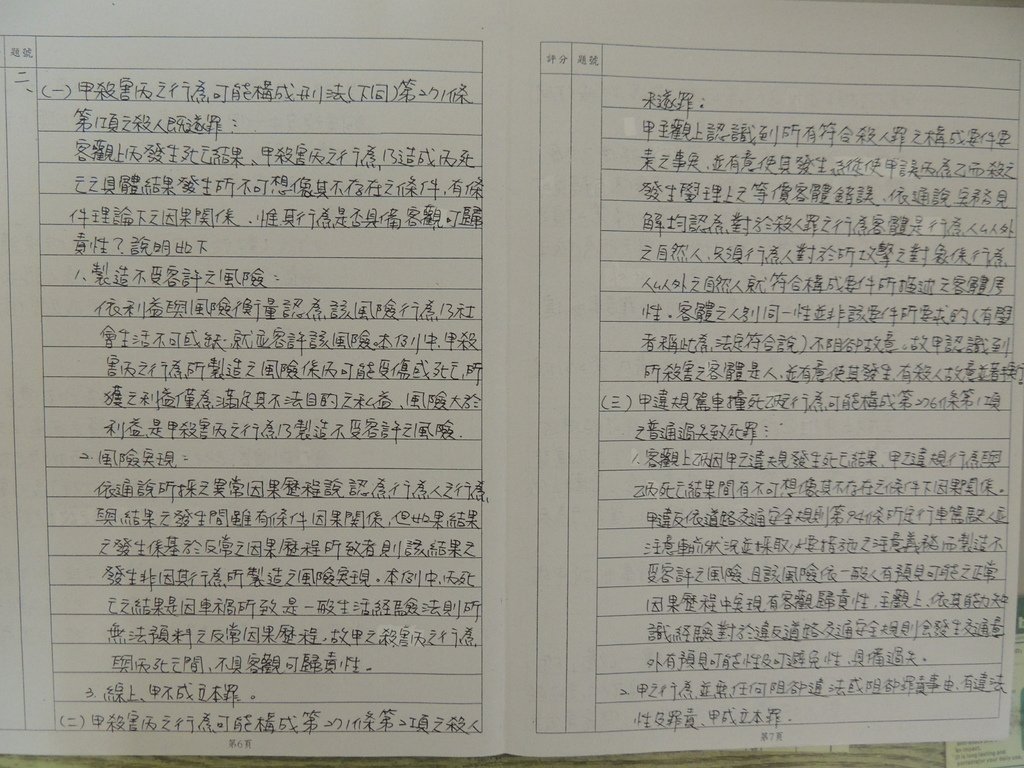 題號
二、
(一)甲殺害丙之行為可能構成刑法(下同)第271條
第1項之殺人既遂罪:
客觀上丙發生死亡結果、甲殺害丙之行為,乃造成丙死
亡之具體結果發生所不可想像其不存在之條件,有條
件理論下之因果關係、惟其行為是否具備客觀可歸
責性?說明如下
1.製造不受容許之風險:
依利益與風險衡量認為,該風險行為,乃社
會生活不可或缺、就並容許該風險。本例中,甲殺
害丙之行為所製造之風險係丙可能受傷或死亡,所
獲之利益僅為滿足其不法目的之私益、風險大於
利益,是甲殺害丙之行為乃製造不受容許之風險.
2.風險実現:
依通說所採之異常因果歷程說、認為行為人之行為
與結果之發生間雖有條件因果關係,但如果結果
之發生係基於反常之因果歷程所致者則該結果之
發生非因其行為所製造之風險実現。本例中,丙死
亡之結果是因車禍所致是一般生活經驗法則所
無法預料之反常因果歷程,故甲之殺害丙之行為
與丙死亡間、不具客觀可歸責性。
3.綜上、甲不成立本罪。
(二)甲殺害丙之行為可能構成第271條第2項之殺人
第6頁
評分 題號
未遂罪:
甲主觀上認識到所有符合殺人罪之構成要件要
素之事実,並有意使其發生,縱使甲誤丙為乙而殺之
發生學理上之等價客體錯誤、依通說実務見
解均認為,對於殺人罪之行為客體是行為人以外
之自然人,只須行為人對於所攻擊之對象係行為
人以外之自然人就符合構成要件所描述之客體屬
性。客體之人別同一性並非該要件所要求的(有學
者稱此為法定符合說)不阻卻故意。故甲認識到
所殺害之客體是人、並有意使其發生,有殺人故意並著手實行
(三)甲違規駕車撞死乙丙行為,可能構成第276條第1項
之普通過失致死罪:
1.客觀上乙丙因甲之違規發生死亡結果、甲之違規行為與
乙丙死亡結果間有不可想像其不存在之條件下因果關係。
甲違反依道路交通安全規則第94條所定行車駕駛人應
注意車前狀況並採取必要措施之注意義務而製造不
受容許之風險、且該風險依一般人有預見可能之正常
因果歷程中実現有客觀歸責性,主觀上、依其能力知
識、經驗對於違反道路交通安全規則會發生交通意
外有預見可能性及可避免性、具備過失。
2.甲之行為並無任何阻卻違法或阻卻罪責事由、有違法
性及罪責、甲成立本罪.
第7頁